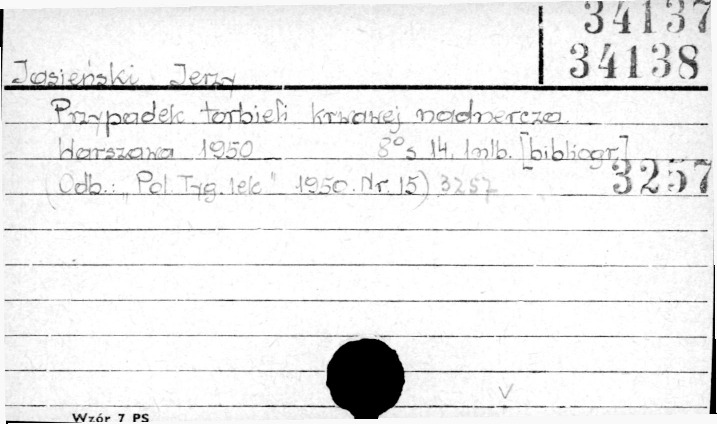 34137
34138
Jasieński Jerzy
Przypadek torbieli krwawej nadnercza
Warszawa 1950 8° s 14, 1nlb. [bibliogr.]
(Odb.: "Pol. Tyg. lek" 1950. Nr. 15) 3257
3257
V
Wzór 7 PS